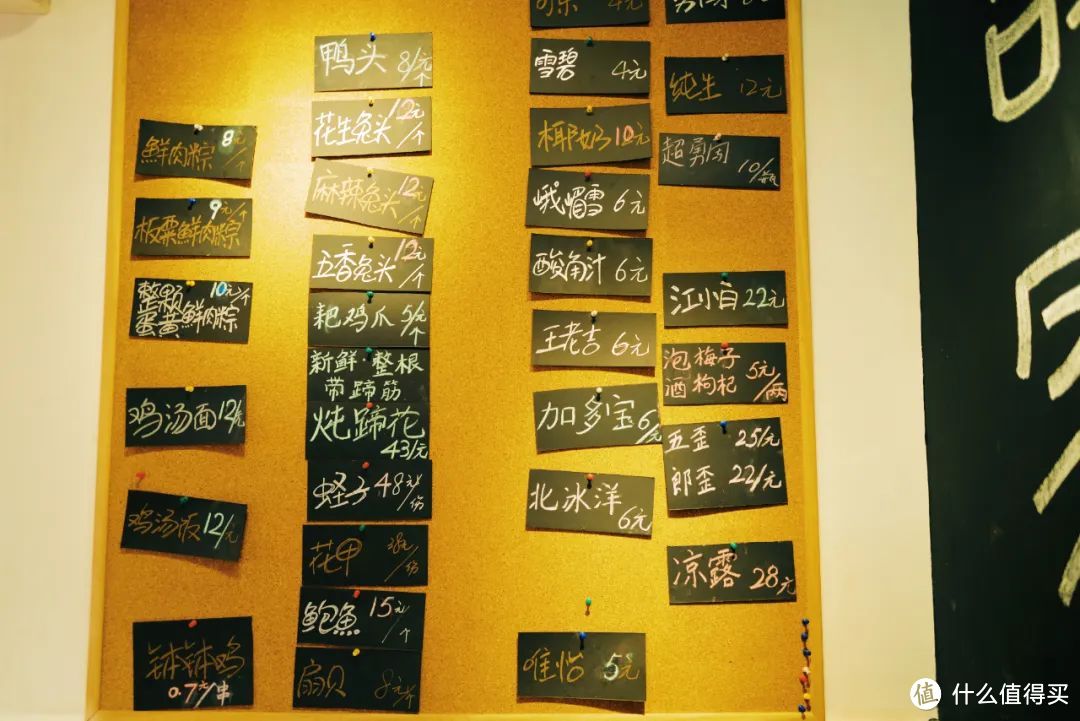 鮮肉粽 8元/个
板粟鮮肉粽 9元/个
整颗 10元/个
蛋黄鮮肉粽
鸡汤面 12/元
鸡汤饭 12/元
钵钵鸡
0.7元/串
鸭头 8/元个
花生兔头 12元/个
麻辣兔头 12元/个
五香兔头 12元/个
耙鸡爪 5/元个
新鲜·整根
带蹄筋
炖蹄花
43/元
蛏子 48元/份
花甲 元/份
鲍魚 15元/个
扇贝 8元/个
4元
雪碧 4元
椰奶 10元
峨嵋雪 6元
酸角汁 6元
王老吉 6元
加多宝 6/元
北冰洋
6元
唯怡 5元
纯生 12元
超勇闯
10/瓶
江小白 22元
泡 梅子 5元/两
酒 枸杞
五歪 25/元
郎歪 22/元
凉露 28元
值 什么值得买